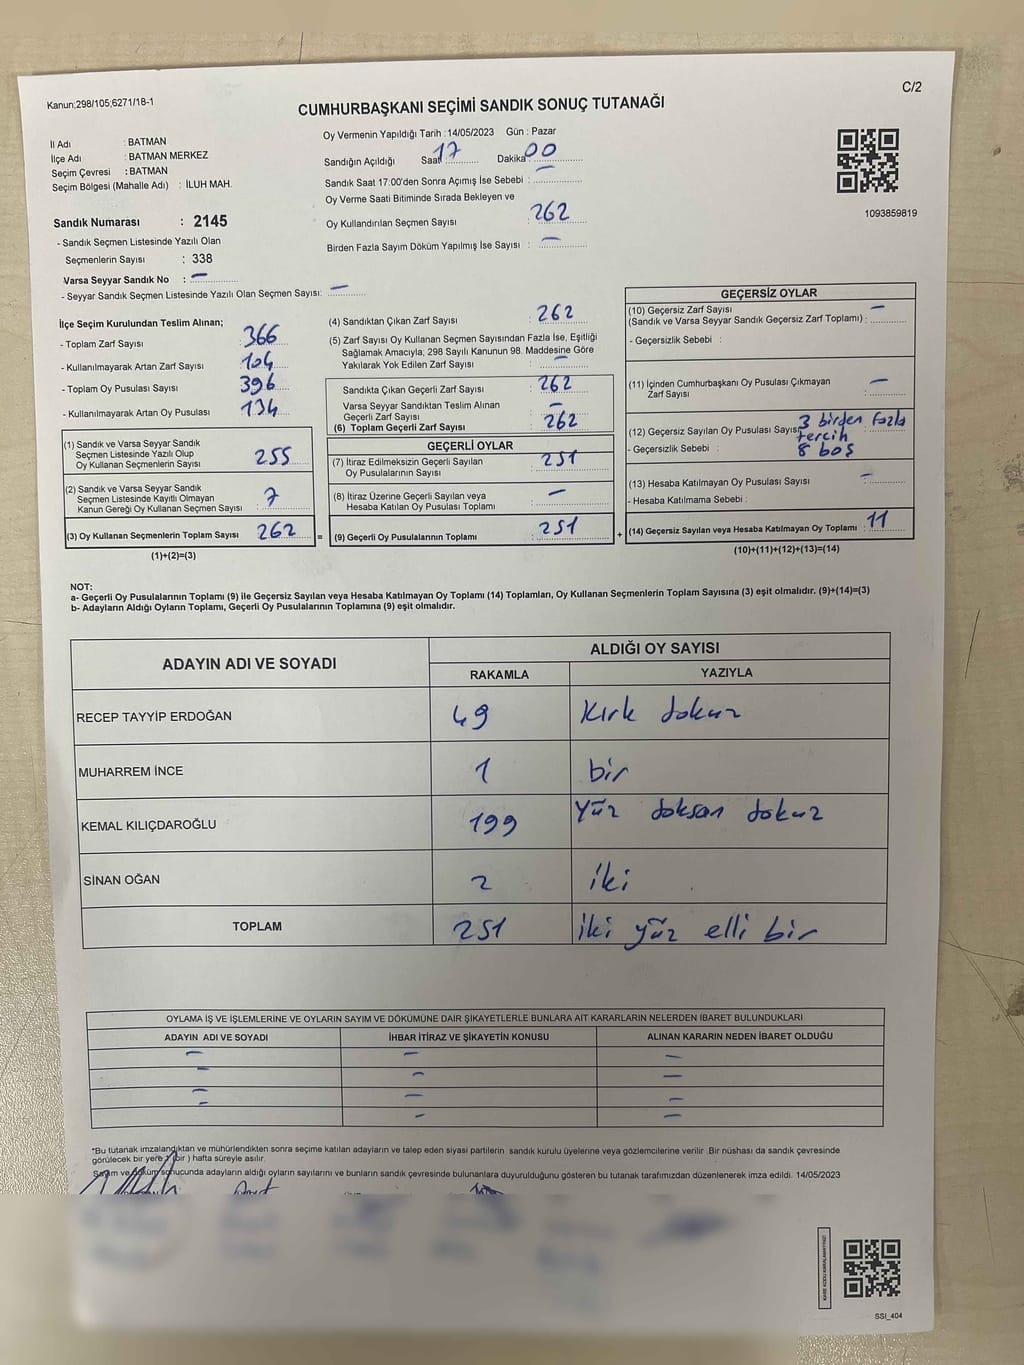 Kanun;298/105;6271/18-1
C/2
CUMHURBAŞKANI SEÇİMİ SANDIK SONUÇ TUTANAĞI
İl Adı : BATMAN
İlçe Adı : BATMAN MERKEZ
Seçim Çevresi : BATMAN
Seçim Bölgesi (Mahalle Adı) : İLUH MAH.
Oy Vermenin Yapıldığı Tarih : 14/05/2023 Gün : Pazar
Sandığın Açıldığı Saat 17 Dakika 00
Sandık Saat 17:00'den Sonra Açımış İse Sebebi : —
Oy Verme Saati Bitiminde Sırada Bekleyen ve
Oy Kullandırılan Seçmen Sayısı : 262
Birden Fazla Sayım Döküm Yapılmış İse Sayısı : —
1093859819
Sandık Numarası : 2145
- Sandık Seçmen Listesinde Yazılı Olan
Seçmenlerin Sayısı : 338
Varsa Seyyar Sandık No : —
- Seyyar Sandık Seçmen Listesinde Yazılı Olan Seçmen Sayısı: —
İlçe Seçim Kurulundan Teslim Alınan;
- Toplam Zarf Sayısı 366
- Kullanılmayarak Artan Zarf Sayısı 104
- Toplam Oy Pusulası Sayısı 396
- Kullanılmayarak Artan Oy Pusulası 134
(1) Sandık ve Varsa Seyyar Sandık
Seçmen Listesinde Yazılı Olup
Oy Kullanan Seçmenlerin Sayısı 255
(2) Sandık ve Varsa Seyyar Sandık
Seçmen Listesinde Kayıtlı Olmayan
Kanun Gereği Oy Kullanan Seçmen Sayısı 7
(3) Oy Kullanan Seçmenlerin Toplam Sayısı 262 =
(1)+(2)=(3)
(4) Sandıktan Çıkan Zarf Sayısı : 262
(5) Zarf Sayısı Oy Kullanan Seçmen Sayısından Fazla İse, Eşitliği
Sağlamak Amacıyla, 298 Sayılı Kanunun 98. Maddesine Göre
Yakılarak Yok Edilen Zarf Sayısı : —
Sandıkta Çıkan Geçerli Zarf Sayısı : 262
Varsa Seyyar Sandıktan Teslim Alınan
Geçerli Zarf Sayısı : —
(6) Toplam Geçerli Zarf Sayısı : 262
GEÇERLİ OYLAR
(7) İtiraz Edilmeksizin Geçerli Sayılan
Oy Pusulalarının Sayısı : 251
(8) İtiraz Üzerine Geçerli Sayılan veya
Hesaba Katılan Oy Pusulası Toplamı : —
(9) Geçerli Oy Pusulalarının Toplamı : 251 +
GEÇERSİZ OYLAR
(10) Geçersiz Zarf Sayısı —
(Sandık ve Varsa Seyyar Sandık Geçersiz Zarf Toplamı) :
- Geçersizlik Sebebi :
(11) İçinden Cumhurbaşkanı Oy Pusulası Çıkmayan
Zarf Sayısı : —
(12) Geçersiz Sayılan Oy Pusulası Sayısı 3 birden fazla
tercih
- Geçersizlik Sebebi : 8 boş
(13) Hesaba Katılmayan Oy Pusulası Sayısı : —
- Hesaba Katılmama Sebebi :
(14) Geçersiz Sayılan veya Hesaba Katılmayan Oy Toplamı : 11
(10)+(11)+(12)+(13)=(14)
NOT:
a- Geçerli Oy Pusulalarının Toplamı (9) ile Geçersiz Sayılan veya Hesaba Katılmayan Oy Toplamı (14) Toplamları, Oy Kullanan Seçmenlerin Toplam Sayısına (3) eşit olmalıdır. (9)+(14)=(3)
b- Adayların Aldığı Oyların Toplamı, Geçerli Oy Pusulalarının Toplamına (9) eşit olmalıdır.
ADAYIN ADI VE SOYADI
ALDIĞI OY SAYISI
RAKAMLA YAZIYLA
RECEP TAYYİP ERDOĞAN 49 Kırk dokuz
MUHARREM İNCE 1 bir
KEMAL KILIÇDAROĞLU 199 Yüz doksan dokuz
SİNAN OĞAN 2 iki
TOPLAM 251 iki yüz elli bir
OYLAMA İŞ VE İŞLEMLERİNE VE OYLARIN SAYIM VE DÖKÜMÜNE DAİR ŞİKAYETLERLE BUNLARA AİT KARARLARIN NELERDEN İBARET BULUNDUKLARI
ADAYIN ADI VE SOYADI İHBAR İTİRAZ VE ŞİKAYETİN KONUSU ALINAN KARARIN NEDEN İBARET OLDUĞU
— — —
— — —
— — —
— — —
*Bu tutanak imzalandıktan ve mühürlendikten sonra seçime katılan adayların ve talep eden siyasi partilerin sandık kurulu üyelerine veya gözlemcilerine verilir .Bir nüshası da sandık çevresinde
görülecek bir yere bir ) hafta süreyle asılır.
Sayım ve döküm sonucunda adayların aldığı oyların sayılarını ve bunların sandık çevresinde bulunanlara duyurulduğunu gösteren bu tutanak tarafımızdan düzenlenerek imza edildi. 14/05/2023
SSİ_404